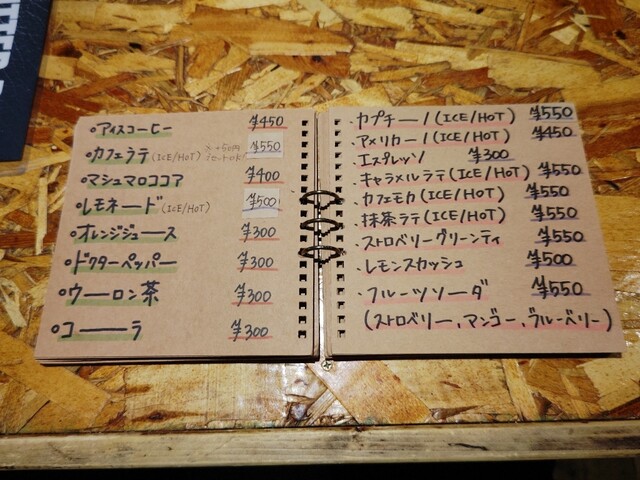 ・アイスコーヒー ¥450
・カフェラテ(ICE/HOT) ¥550
・マシュマロココア ¥400
・レモネード(ICE/HOT) ¥500
・オレンジジュース ¥300
・ドクターペッパー ¥300
・ウーロン茶 ¥300
・コーラ ¥300
・カプチーノ(ICE/HOT) ¥550
・アメリカーノ(ICE/HOT) ¥450
・エスプレッソ ¥300
・キャラメルラテ(ICE/HOT) ¥550
・カフェモカ(ICE/HOT) ¥550
・抹茶ラテ(ICE/HOT) ¥550
・ストロベリーグリーンティ ¥550
・レモンスカッシュ ¥500
・フルーツソーダ ¥550
(ストロベリー、マンゴー、ブルーベリー)